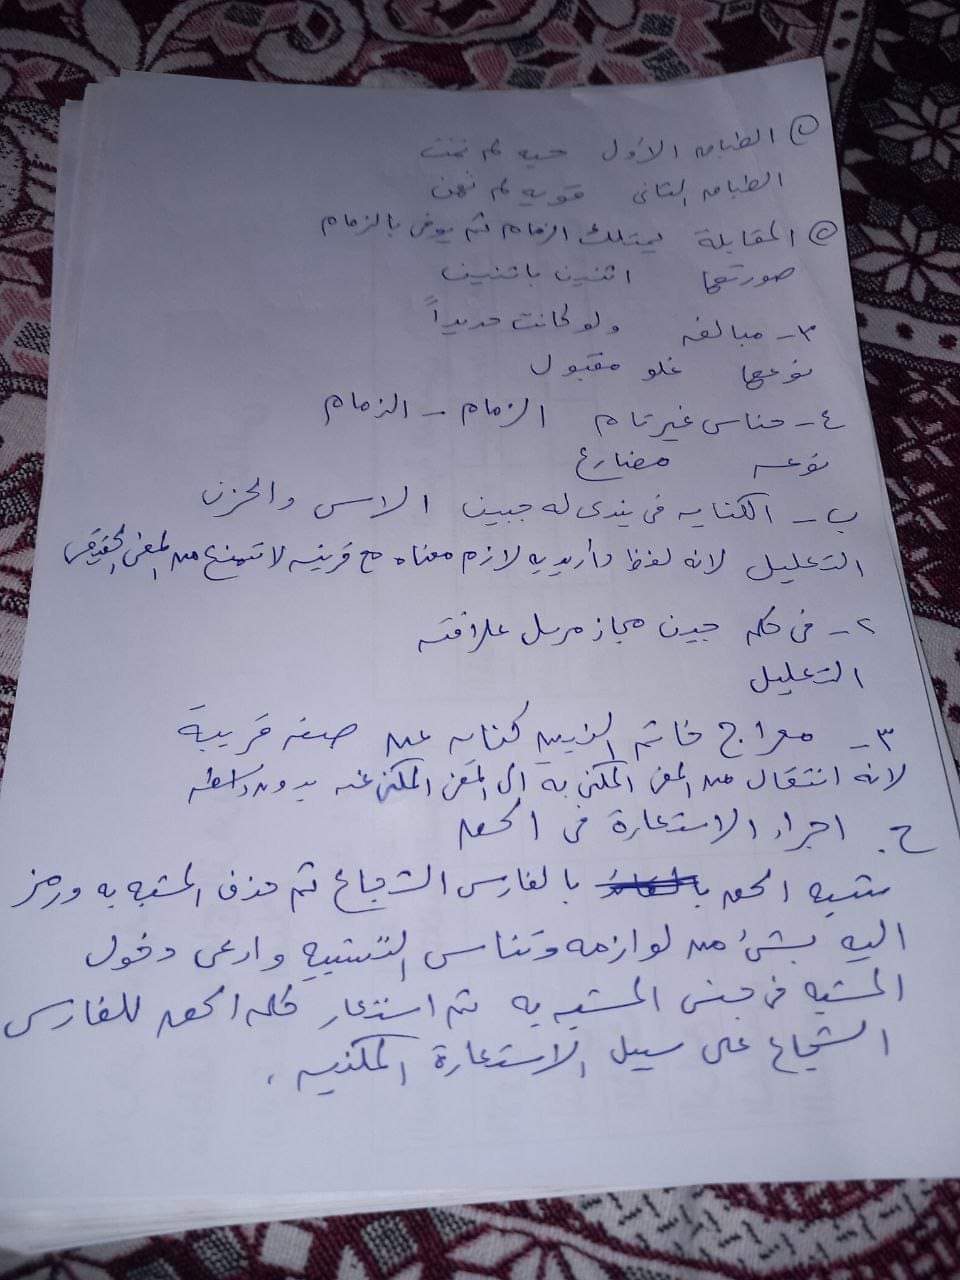 ① الطباق الأول حيه لم تمت
الطباق الثانى قويه لم تهن
② المقابلة يمتلك الزمام ثم يوفى بالزمام
صورتها اثنين باثنين
٣- مبالغه ولو كانت حديداً
نوعها غلو مقبول
٤- جناس غير تام الزمام - الذمام
نوعه مضارع
ب- الكنايه فى يندى له جبين الاسى والحزن
التعليل لانه لفظ وأريد به لازم معناه مع قرينه لا تمنع من المعنى الحقيقى
٢- فى كلمه جبين مجاز مرسل علاقته
التعليل
٣- معراج خاتم النبيين كنايه عن صفه قريبة
لانه انتقال من المعنى المكنى به الى المعنى المكنى عنه بدون واسطه
ج. اجراء الاستعارة فى الحق
شبيه الحق بالفارس الشجاع ثم حذف المشبه به ورمز
اليه بشئ من لوازمه وتناسى التشبيه وادعى دخول
المشبه فى جنس المشبه به ثم استعار كلمه الحق للفارس
الشجاع على سبيل الاستعارة المكنيه .